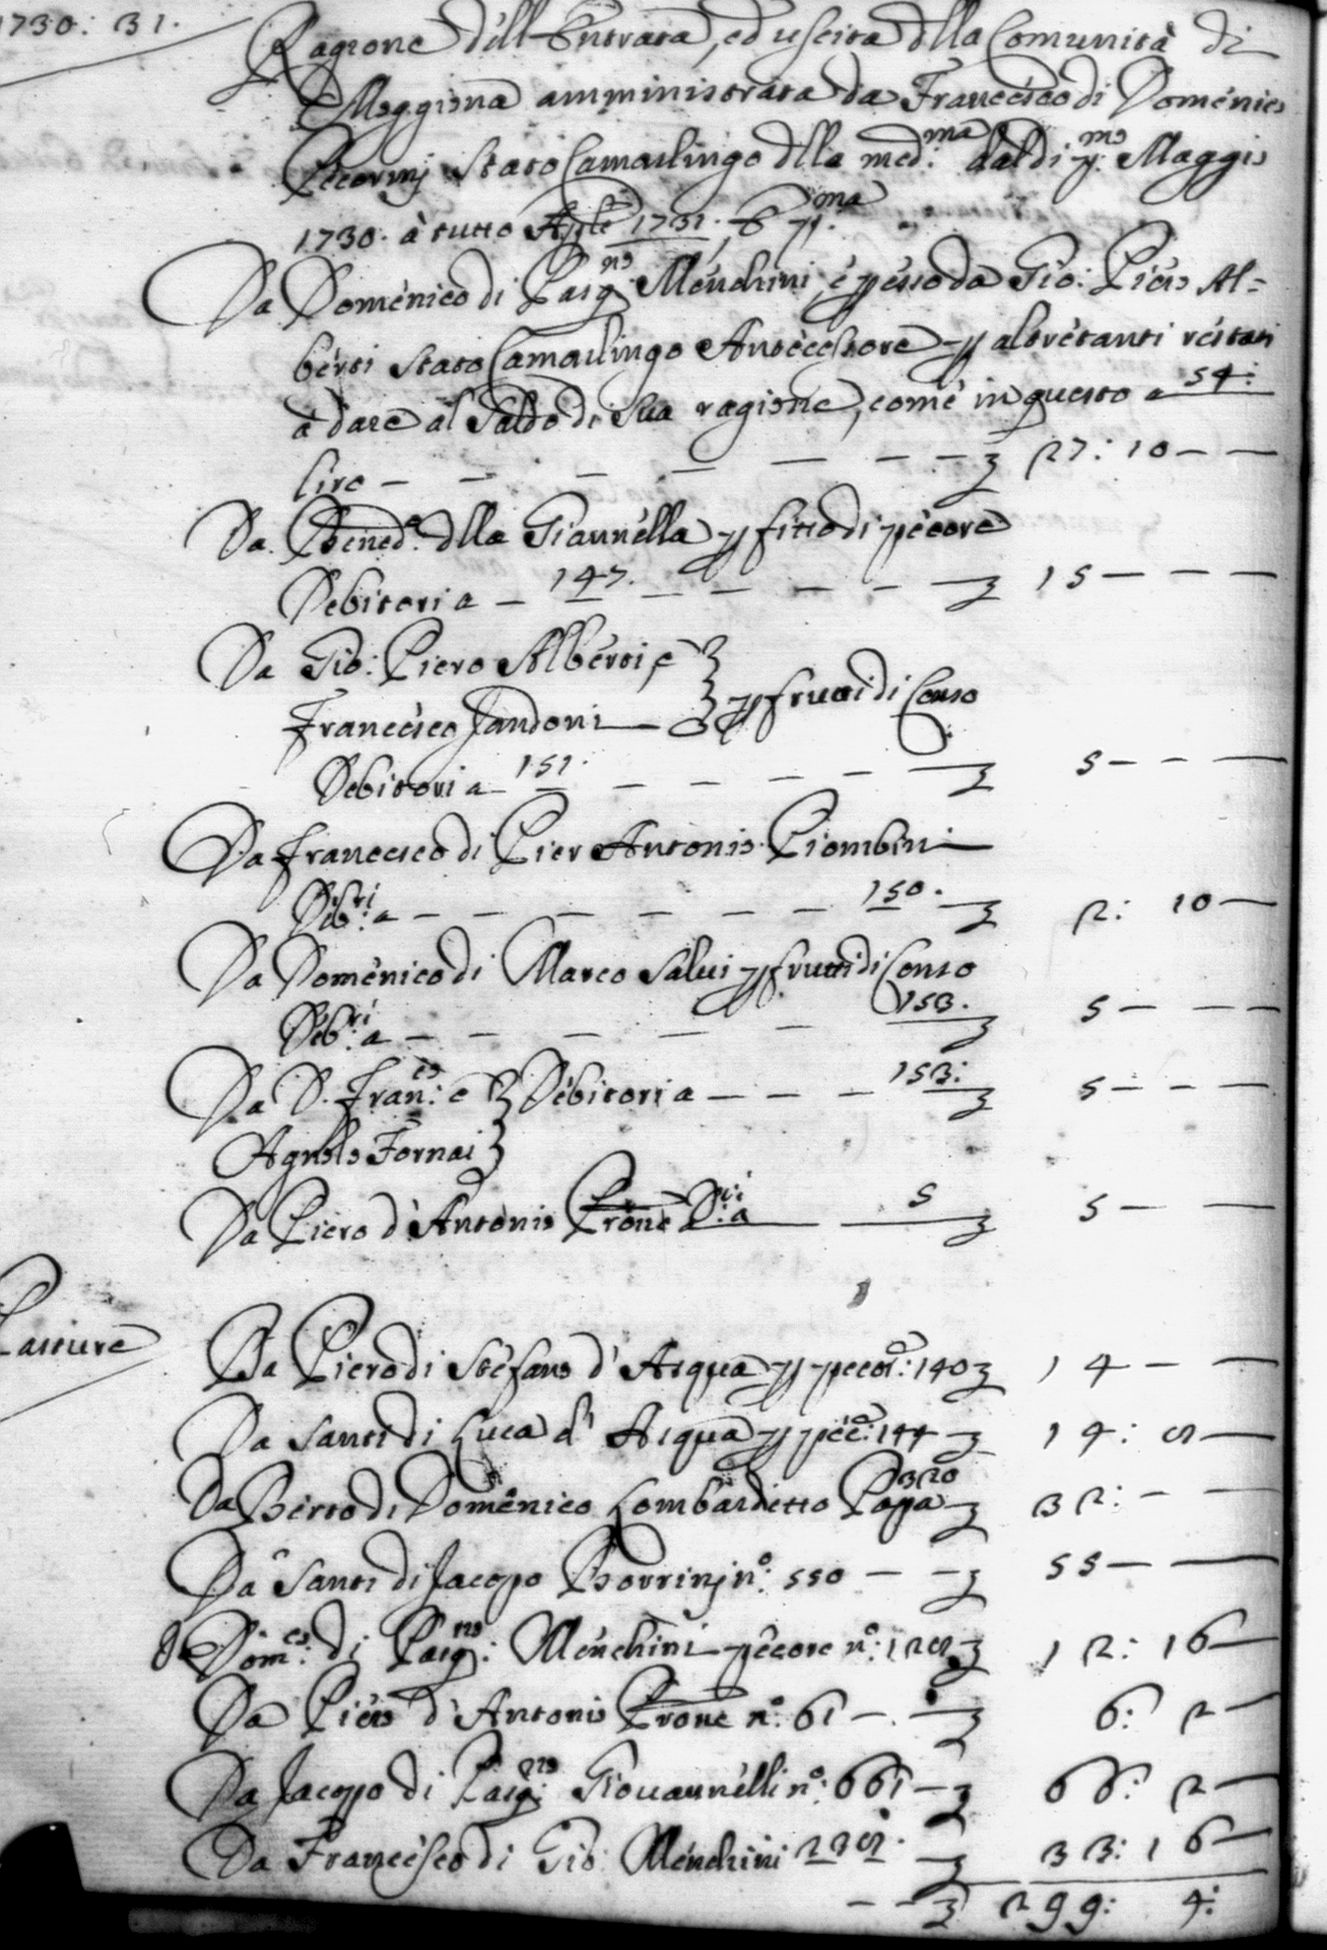 1730: 31.
Ragione dell'Entrata, ed uscita dlla Comunità di
Moggiona amministrata da Francesco di Domenico
Pecorinj Stato Camarlingo dlla med:ma dal di p:mo Maggio
1730. à tutto Aple 1731. E p:ma
Da Domenico di Pasq:no Menchini, e p esso da Gio: Piero Al=
berti Stato Camarlingo Antècessore p altretanti restati
a dare al Saldo di Sua ragione, come in questo a 54:
lire - - - - - - - 27: 10 - -
Da Bened:o dlla Giannella p fitto di pecore
Debitori a - 147. - - - - - 15 - - -
Da Gio: Piero Alberti, e
Francesco Jandoni - p frutti di Censo
Debitori a 151. - - - - 5 - - -
Da Francesco di Pier Antonio Piombini
Deb:ri a - - - - - - - 150. - 2: 10 -
Da Domenico di Marco Salvi p frutti di Censo
Deb:ri a - - - - - 153. 5 - - -
Da D. Fran:co e Debitori a - - - 153: 5 - - -
Agnolo Fornai
Da Piero d'Antonio Prone D:ri a 5 5 - -
Pasture
Da Piero di Stefano d'Acqua p pecor:e 140 14 - -
Da Santi di Luca d'Acqua p pec:e 144 - 14: 8 -
Da Birro di Domenico Lombardetto Papa 320 32: - -
Da Santi di Jacopo Borrinj n:o 550 - - 55 - -
Da Dom:co di Pasq:no Menchini pecore n:o 128 12: 16 -
Da Piero d'Antonio Prone n:o 61 - - 6: 2 -
Da Jacopo di Pasq:no Giovannelli n:o 661 - 66: 2 -
Da Francesco di Gio: Menchini 238. - 33: 16 -
- - 299: 4: